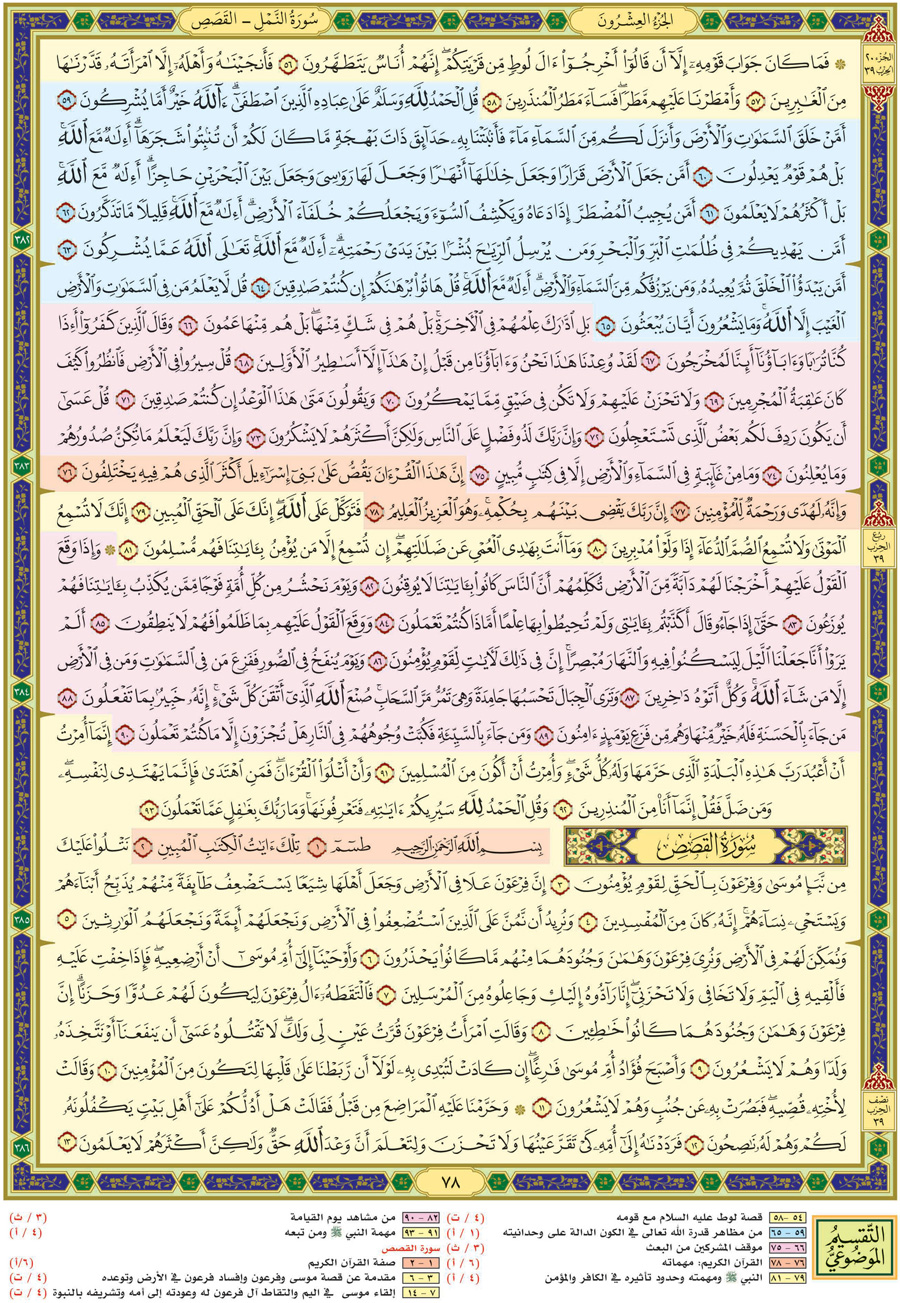 الجزء العشرون
سورة النمل - القصص
۞ فَمَا كَانَ جَوَابَ قَوْمِهِۦٓ إِلَّآ أَن قَالُوٓا۟ أَخْرِجُوٓا۟ ءَالَ لُوطٍ مِّن قَرْيَتِكُمْ ۖ إِنَّهُمْ أُنَاسٌ يَتَطَهَّرُونَ ٥٦ فَأَنجَيْنَٰهُ وَأَهْلَهُۥٓ إِلَّا ٱمْرَأَتَهُۥ قَدَّرْنَٰهَا
مِنَ ٱلْغَٰبِرِينَ ٥٧ وَأَمْطَرْنَا عَلَيْهِم مَّطَرًا ۖ فَسَآءَ مَطَرُ ٱلْمُنذَرِينَ ٥٨ قُلِ ٱلْحَمْدُ لِلَّهِ وَسَلَٰمٌ عَلَىٰ عِبَادِهِ ٱلَّذِينَ ٱصْطَفَىٰٓ ۗ ءَآللَّهُ خَيْرٌ أَمَّا يُشْرِكُونَ ٥٩
أَمَّنْ خَلَقَ ٱلسَّمَٰوَٰتِ وَٱلْأَرْضَ وَأَنزَلَ لَكُم مِّنَ ٱلسَّمَآءِ مَآءً فَأَنۢبَتْنَا بِهِۦ حَدَآئِقَ ذَاتَ بَهْجَةٍ مَّا كَانَ لَكُمْ أَن تُنۢبِتُوا۟ شَجَرَهَآ ۗ أَءِلَٰهٌ مَّعَ ٱللَّهِ ۚ
بَلْ هُمْ قَوْمٌ يَعْدِلُونَ ٦٠ أَمَّن جَعَلَ ٱلْأَرْضَ قَرَارًا وَجَعَلَ خِلَٰلَهَآ أَنْهَٰرًا وَجَعَلَ لَهَا رَوَٰسِىَ وَجَعَلَ بَيْنَ ٱلْبَحْرَيْنِ حَاجِزًا ۗ أَءِلَٰهٌ مَّعَ ٱللَّهِ ۚ
بَلْ أَكْثَرُهُمْ لَا يَعْلَمُونَ ٦١ أَمَّن يُجِيبُ ٱلْمُضْطَرَّ إِذَا دَعَاهُ وَيَكْشِفُ ٱلسُّوٓءَ وَيَجْعَلُكُمْ خُلَفَآءَ ٱلْأَرْضِ ۗ أَءِلَٰهٌ مَّعَ ٱللَّهِ ۚ قَلِيلًا مَّا تَذَكَّرُونَ ٦٢
أَمَّن يَهْدِيكُمْ فِى ظُلُمَٰتِ ٱلْبَرِّ وَٱلْبَحْرِ وَمَن يُرْسِلُ ٱلرِّيَٰحَ بُشْرًۢا بَيْنَ يَدَىْ رَحْمَتِهِۦٓ ۗ أَءِلَٰهٌ مَّعَ ٱللَّهِ ۚ تَعَٰلَى ٱللَّهُ عَمَّا يُشْرِكُونَ ٦٣
أَمَّن يَبْدَؤُا۟ ٱلْخَلْقَ ثُمَّ يُعِيدُهُۥ وَمَن يَرْزُقُكُم مِّنَ ٱلسَّمَآءِ وَٱلْأَرْضِ ۗ أَءِلَٰهٌ مَّعَ ٱللَّهِ ۚ قُلْ هَاتُوا۟ بُرْهَٰنَكُمْ إِن كُنتُمْ صَٰدِقِينَ ٦٤ قُل لَّا يَعْلَمُ مَن فِى ٱلسَّمَٰوَٰتِ وَٱلْأَرْضِ
ٱلْغَيْبَ إِلَّا ٱللَّهُ ۚ وَمَا يَشْعُرُونَ أَيَّانَ يُبْعَثُونَ ٦٥ بَلِ ٱدَّٰرَكَ عِلْمُهُمْ فِى ٱلْءَاخِرَةِ ۚ بَلْ هُمْ فِى شَكٍّ مِّنْهَا ۖ بَلْ هُم مِّنْهَا عَمُونَ ٦٦ وَقَالَ ٱلَّذِينَ كَفَرُوٓا۟ أَءِذَا
كُنَّا تُرَٰبًا وَءَابَآؤُنَآ أَئِنَّا لَمُخْرَجُونَ ٦٧ لَقَدْ وُعِدْنَا هَٰذَا نَحْنُ وَءَابَآؤُنَا مِن قَبْلُ إِنْ هَٰذَآ إِلَّآ أَسَٰطِيرُ ٱلْأَوَّلِينَ ٦٨ قُلْ سِيرُوا۟ فِى ٱلْأَرْضِ فَٱنظُرُوا۟ كَيْفَ
كَانَ عَٰقِبَةُ ٱلْمُجْرِمِينَ ٦٩ وَلَا تَحْزَنْ عَلَيْهِمْ وَلَا تَكُن فِى ضَيْقٍ مِّمَّا يَمْكُرُونَ ٧٠ وَيَقُولُونَ مَتَىٰ هَٰذَا ٱلْوَعْدُ إِن كُنتُمْ صَٰدِقِينَ ٧١ قُلْ عَسَىٰٓ
أَن يَكُونَ رَدِفَ لَكُم بَعْضُ ٱلَّذِى تَسْتَعْجِلُونَ ٧٢ وَإِنَّ رَبَّكَ لَذُو فَضْلٍ عَلَى ٱلنَّاسِ وَلَٰكِنَّ أَكْثَرَهُمْ لَا يَشْكُرُونَ ٧٣ وَإِنَّ رَبَّكَ لَيَعْلَمُ مَا تُكِنُّ صُدُورُهُمْ
وَمَا يُعْلِنُونَ ٧٤ وَمَا مِنْ غَآئِبَةٍ فِى ٱلسَّمَآءِ وَٱلْأَرْضِ إِلَّا فِى كِتَٰبٍ مُّبِينٍ ٧٥ إِنَّ هَٰذَا ٱلْقُرْءَانَ يَقُصُّ عَلَىٰ بَنِىٓ إِسْرَٰٓءِيلَ أَكْثَرَ ٱلَّذِى هُمْ فِيهِ يَخْتَلِفُونَ ٧٦
وَإِنَّهُۥ لَهُدًى وَرَحْمَةٌ لِّلْمُؤْمِنِينَ ٧٧ إِنَّ رَبَّكَ يَقْضِى بَيْنَهُم بِحُكْمِهِۦ ۚ وَهُوَ ٱلْعَزِيزُ ٱلْعَلِيمُ ٧٨ فَتَوَكَّلْ عَلَى ٱللَّهِ ۖ إِنَّكَ عَلَى ٱلْحَقِّ ٱلْمُبِينِ ٧٩ إِنَّكَ لَا تُسْمِعُ
ٱلْمَوْتَىٰ وَلَا تُسْمِعُ ٱلصُّمَّ ٱلدُّعَآءَ إِذَا وَلَّوْا۟ مُدْبِرِينَ ٨٠ وَمَآ أَنتَ بِهَٰدِى ٱلْعُمْىِ عَن ضَلَٰلَتِهِمْ ۖ إِن تُسْمِعُ إِلَّا مَن يُؤْمِنُ بِـَٔايَٰتِنَا فَهُم مُّسْلِمُونَ ٨١ ۞ وَإِذَا وَقَعَ
ٱلْقَوْلُ عَلَيْهِمْ أَخْرَجْنَا لَهُمْ دَآبَّةً مِّنَ ٱلْأَرْضِ تُكَلِّمُهُمْ أَنَّ ٱلنَّاسَ كَانُوا۟ بِـَٔايَٰتِنَا لَا يُوقِنُونَ ٨٢ وَيَوْمَ نَحْشُرُ مِن كُلِّ أُمَّةٍ فَوْجًا مِّمَّن يُكَذِّبُ بِـَٔايَٰتِنَا فَهُمْ
يُوزَعُونَ ٨٣ حَتَّىٰٓ إِذَا جَآءُو قَالَ أَكَذَّبْتُم بِـَٔايَٰتِى وَلَمْ تُحِيطُوا۟ بِهَا عِلْمًا أَمَّاذَا كُنتُمْ تَعْمَلُونَ ٨٤ وَوَقَعَ ٱلْقَوْلُ عَلَيْهِم بِمَا ظَلَمُوا۟ فَهُمْ لَا يَنطِقُونَ ٨٥ أَلَمْ
يَرَوْا۟ أَنَّا جَعَلْنَا ٱلَّيْلَ لِيَسْكُنُوا۟ فِيهِ وَٱلنَّهَارَ مُبْصِرًا ۚ إِنَّ فِى ذَٰلِكَ لَءَايَٰتٍ لِّقَوْمٍ يُؤْمِنُونَ ٨٦ وَيَوْمَ يُنفَخُ فِى ٱلصُّورِ فَفَزِعَ مَن فِى ٱلسَّمَٰوَٰتِ وَمَن فِى ٱلْأَرْضِ
إِلَّا مَن شَآءَ ٱللَّهُ ۚ وَكُلٌّ أَتَوْهُ دَٰخِرِينَ ٨٧ وَتَرَى ٱلْجِبَالَ تَحْسَبُهَا جَامِدَةً وَهِىَ تَمُرُّ مَرَّ ٱلسَّحَابِ ۚ صُنْعَ ٱللَّهِ ٱلَّذِىٓ أَتْقَنَ كُلَّ شَىْءٍ ۚ إِنَّهُۥ خَبِيرٌۢ بِمَا تَفْعَلُونَ ٨٨
مَن جَآءَ بِٱلْحَسَنَةِ فَلَهُۥ خَيْرٌ مِّنْهَا وَهُم مِّن فَزَعٍ يَوْمَئِذٍ ءَامِنُونَ ٨٩ وَمَن جَآءَ بِٱلسَّيِّئَةِ فَكُبَّتْ وُجُوهُهُمْ فِى ٱلنَّارِ هَلْ تُجْزَوْنَ إِلَّا مَا كُنتُمْ تَعْمَلُونَ ٩٠ إِنَّمَآ أُمِرْتُ
أَنْ أَعْبُدَ رَبَّ هَٰذِهِ ٱلْبَلْدَةِ ٱلَّذِى حَرَّمَهَا وَلَهُۥ كُلُّ شَىْءٍ ۖ وَأُمِرْتُ أَنْ أَكُونَ مِنَ ٱلْمُسْلِمِينَ ٩١ وَأَنْ أَتْلُوَا۟ ٱلْقُرْءَانَ ۖ فَمَنِ ٱهْتَدَىٰ فَإِنَّمَا يَهْتَدِى لِنَفْسِهِۦ ۖ
وَمَن ضَلَّ فَقُلْ إِنَّمَآ أَنَا۠ مِنَ ٱلْمُنذِرِينَ ٩٢ وَقُلِ ٱلْحَمْدُ لِلَّهِ سَيُرِيكُمْ ءَايَٰتِهِۦ فَتَعْرِفُونَهَا ۚ وَمَا رَبُّكَ بِغَٰفِلٍ عَمَّا تَعْمَلُونَ ٩٣
سورة القصص
بِسْمِ ٱللَّهِ ٱلرَّحْمَٰنِ ٱلرَّحِيمِ طسٓمٓ ١ تِلْكَ ءَايَٰتُ ٱلْكِتَٰبِ ٱلْمُبِينِ ٢ نَتْلُوا۟ عَلَيْكَ
مِن نَّبَإِ مُوسَىٰ وَفِرْعَوْنَ بِٱلْحَقِّ لِقَوْمٍ يُؤْمِنُونَ ٣ إِنَّ فِرْعَوْنَ عَلَا فِى ٱلْأَرْضِ وَجَعَلَ أَهْلَهَا شِيَعًا يَسْتَضْعِفُ طَآئِفَةً مِّنْهُمْ يُذَبِّحُ أَبْنَآءَهُمْ
وَيَسْتَحْىِۦ نِسَآءَهُمْ ۚ إِنَّهُۥ كَانَ مِنَ ٱلْمُفْسِدِينَ ٤ وَنُرِيدُ أَن نَّمُنَّ عَلَى ٱلَّذِينَ ٱسْتُضْعِفُوا۟ فِى ٱلْأَرْضِ وَنَجْعَلَهُمْ أَئِمَّةً وَنَجْعَلَهُمُ ٱلْوَٰرِثِينَ ٥
وَنُمَكِّنَ لَهُمْ فِى ٱلْأَرْضِ وَنُرِىَ فِرْعَوْنَ وَهَٰمَٰنَ وَجُنُودَهُمَا مِنْهُم مَّا كَانُوا۟ يَحْذَرُونَ ٦ وَأَوْحَيْنَآ إِلَىٰٓ أُمِّ مُوسَىٰٓ أَنْ أَرْضِعِيهِ ۖ فَإِذَا خِفْتِ عَلَيْهِ
فَأَلْقِيهِ فِى ٱلْيَمِّ وَلَا تَخَافِى وَلَا تَحْزَنِىٓ ۖ إِنَّا رَآدُّوهُ إِلَيْكِ وَجَاعِلُوهُ مِنَ ٱلْمُرْسَلِينَ ٧ فَٱلْتَقَطَهُۥٓ ءَالُ فِرْعَوْنَ لِيَكُونَ لَهُمْ عَدُوًّا وَحَزَنًا ۗ إِنَّ
فِرْعَوْنَ وَهَٰمَٰنَ وَجُنُودَهُمَا كَانُوا۟ خَٰطِـِٔينَ ٨ وَقَالَتِ ٱمْرَأَتُ فِرْعَوْنَ قُرَّتُ عَيْنٍ لِّى وَلَكَ ۖ لَا تَقْتُلُوهُ عَسَىٰٓ أَن يَنفَعَنَآ أَوْ نَتَّخِذَهُۥ
وَلَدًا وَهُمْ لَا يَشْعُرُونَ ٩ وَأَصْبَحَ فُؤَادُ أُمِّ مُوسَىٰ فَٰرِغًا ۖ إِن كَادَتْ لَتُبْدِى بِهِۦ لَوْلَآ أَن رَّبَطْنَا عَلَىٰ قَلْبِهَا لِتَكُونَ مِنَ ٱلْمُؤْمِنِينَ ١٠ وَقَالَتْ
لِأُخْتِهِۦ قُصِّيهِ ۖ فَبَصُرَتْ بِهِۦ عَن جُنُبٍ وَهُمْ لَا يَشْعُرُونَ ١١ ۞ وَحَرَّمْنَا عَلَيْهِ ٱلْمَرَاضِعَ مِن قَبْلُ فَقَالَتْ هَلْ أَدُلُّكُمْ عَلَىٰٓ أَهْلِ بَيْتٍ يَكْفُلُونَهُۥ
لَكُمْ وَهُمْ لَهُۥ نَٰصِحُونَ ١٢ فَرَدَدْنَٰهُ إِلَىٰٓ أُمِّهِۦ كَىْ تَقَرَّ عَيْنُهَا وَلَا تَحْزَنَ وَلِتَعْلَمَ أَنَّ وَعْدَ ٱللَّهِ حَقٌّ وَلَٰكِنَّ أَكْثَرَهُمْ لَا يَعْلَمُونَ ١٣
الجزء ٢٠
الحزب ٣٩
ربع
الحزب
٣٩
نصف
الحزب
٣٩
٣٨٢
٣٨٣
٣٨٤
٣٨٥
٣٨٦
٧٨
التقسيم
الموضوعي
٥٤ - ٥٨ قصة لوط عليه السلام مع قومه (٤ / ت)
٥٩ - ٦٥ من مظاهر قدرة الله تعالى في الكون الدالة على وحدانيته (١ / أ)
٦٦ - ٧٥ موقف المشركين من البعث (٣ / ث)
٧٦ - ٧٨ القرآن الكريم: مهماته (٦ / أ)
٧٩ - ٨١ النبي ﷺ ومهمته وحدود تأثيره في الكافر والمؤمن (٤ / أ)
٨٢ - ٩٠ من مشاهد يوم القيامة (٣ / ث)
٩١ - ٩٣ مهمة النبي ﷺ ومن تبعه (٤ / أ)
سورة القصص
١ - ٢ صفة القرآن الكريم (٦/أ)
٣ - ٦ مقدمة عن قصة موسى وفرعون وإفساد فرعون في الأرض وتوعده (٤ / ت)
٧ - ١٤ إلقاء موسى في اليم والتقاط آل فرعون له وعودته إلى أمه وتشريفه بالنبوة (٤ / ت)